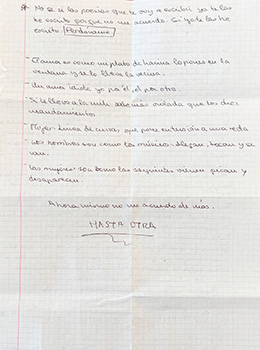 * No se si las poesias que te voy a escribir ya te las
he escrito porque no me acuerdo. Si ya te las he
escrito Perdóname.
- El amor es como un plato de harina lo pones en la
ventana y se lo lleva la vecina.
- Un amor idiota yo por el, el por otra.
- Si te llevo a la mili seras mas violada que los diez
mandamientos.
- Mujer: Linea de curvas que pone en tension a una recta
- Los hombres son como los músicos: llegan, tocan y se
van.
- Las mujeres son como las serpientes vienen pican y
desaparecen.
Ahora mismo no me acuerdo de más.
HASTA OTRA